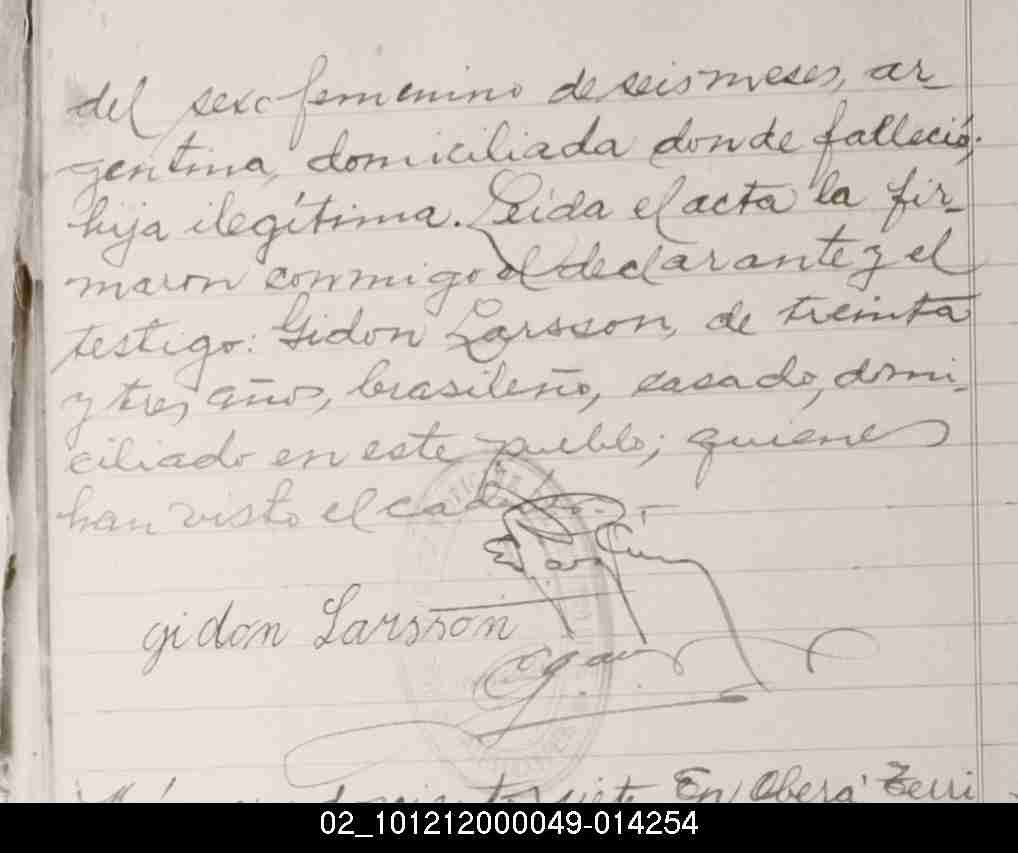 del sexo femenino de seis meses, ar-
gentina, domiciliada donde falleció;
hija ilegítima. Leida el acta la fir-
maron conmigo el declarante y el
testigo: Gidon Larsson, de treinta
y tres años, brasileño, casado, domi-
ciliado en este pueblo; quienes
han visto el cadáver.
gidon Larsson
siete En Oberá Terri
02_101212000049-014254